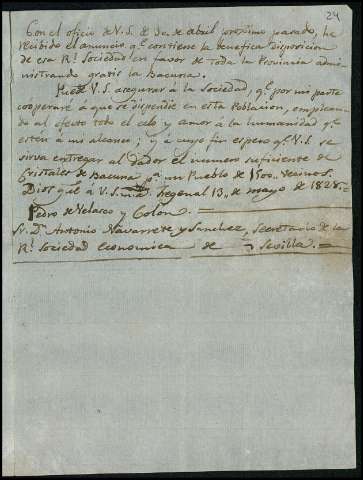 24
Con el oficio de V.S. de 30 de abril proximo pasado, he
recibido el anuncio q.e contiene la benefica disposicion
de esa R.l Sociedad en favor de toda la Provincia admi-
nistrando gratis la Bacuna.
Puede V.S. asegurar à la Sociedad, q.e por mi parte
cooperaré à que se dispendie en esta Poblacion, emplean-
do al efecto todo el celo y amor à la humanidad q.e
esten à mis alcances; y à cuyo fin espero q.e V.S. se
sirva entregar al dador el numero suficiente de
Cristales de Bacuna p.a un Pueblo de 1500 vecinos.
Dios gûe à V.S. m.s a.s Fregenal 13,, de mayo de 1828.=
Pedro de Velasco y Colon.
S.r D.n Antonio Navarrete y Sanchez, Secretario de la
R.l Sociedad economica de Sevilla.=